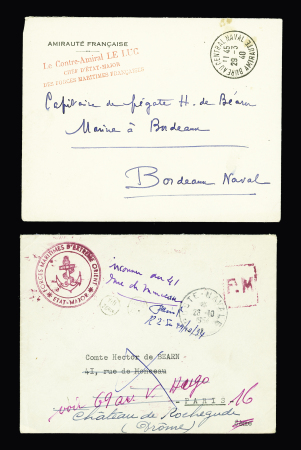 AMIRAUTÉ FRANÇAISE
Le Contre-Amiral LE LUC
CHEF D'ÉTAT-MAJOR
DES FORCES MARITIMES FRANÇAISES
BUREAU CENTRAL NAVAL
11 45
29 - 3
40
Capitaine de frégate H. de Béarn
Marine à Bordeaux
Bordeaux Naval
FORCES MARITIMES D'EXTRÊME ORIENT
ÉTAT-MAJOR
inconnu au 41
rue de Monceau
POSTE NAVALE
FM
Comte Hector de BEARN
41, rue de Monceau
voir 69 av. V. Hugo
PARIS 16
Château de Rochegude
(Drôme)